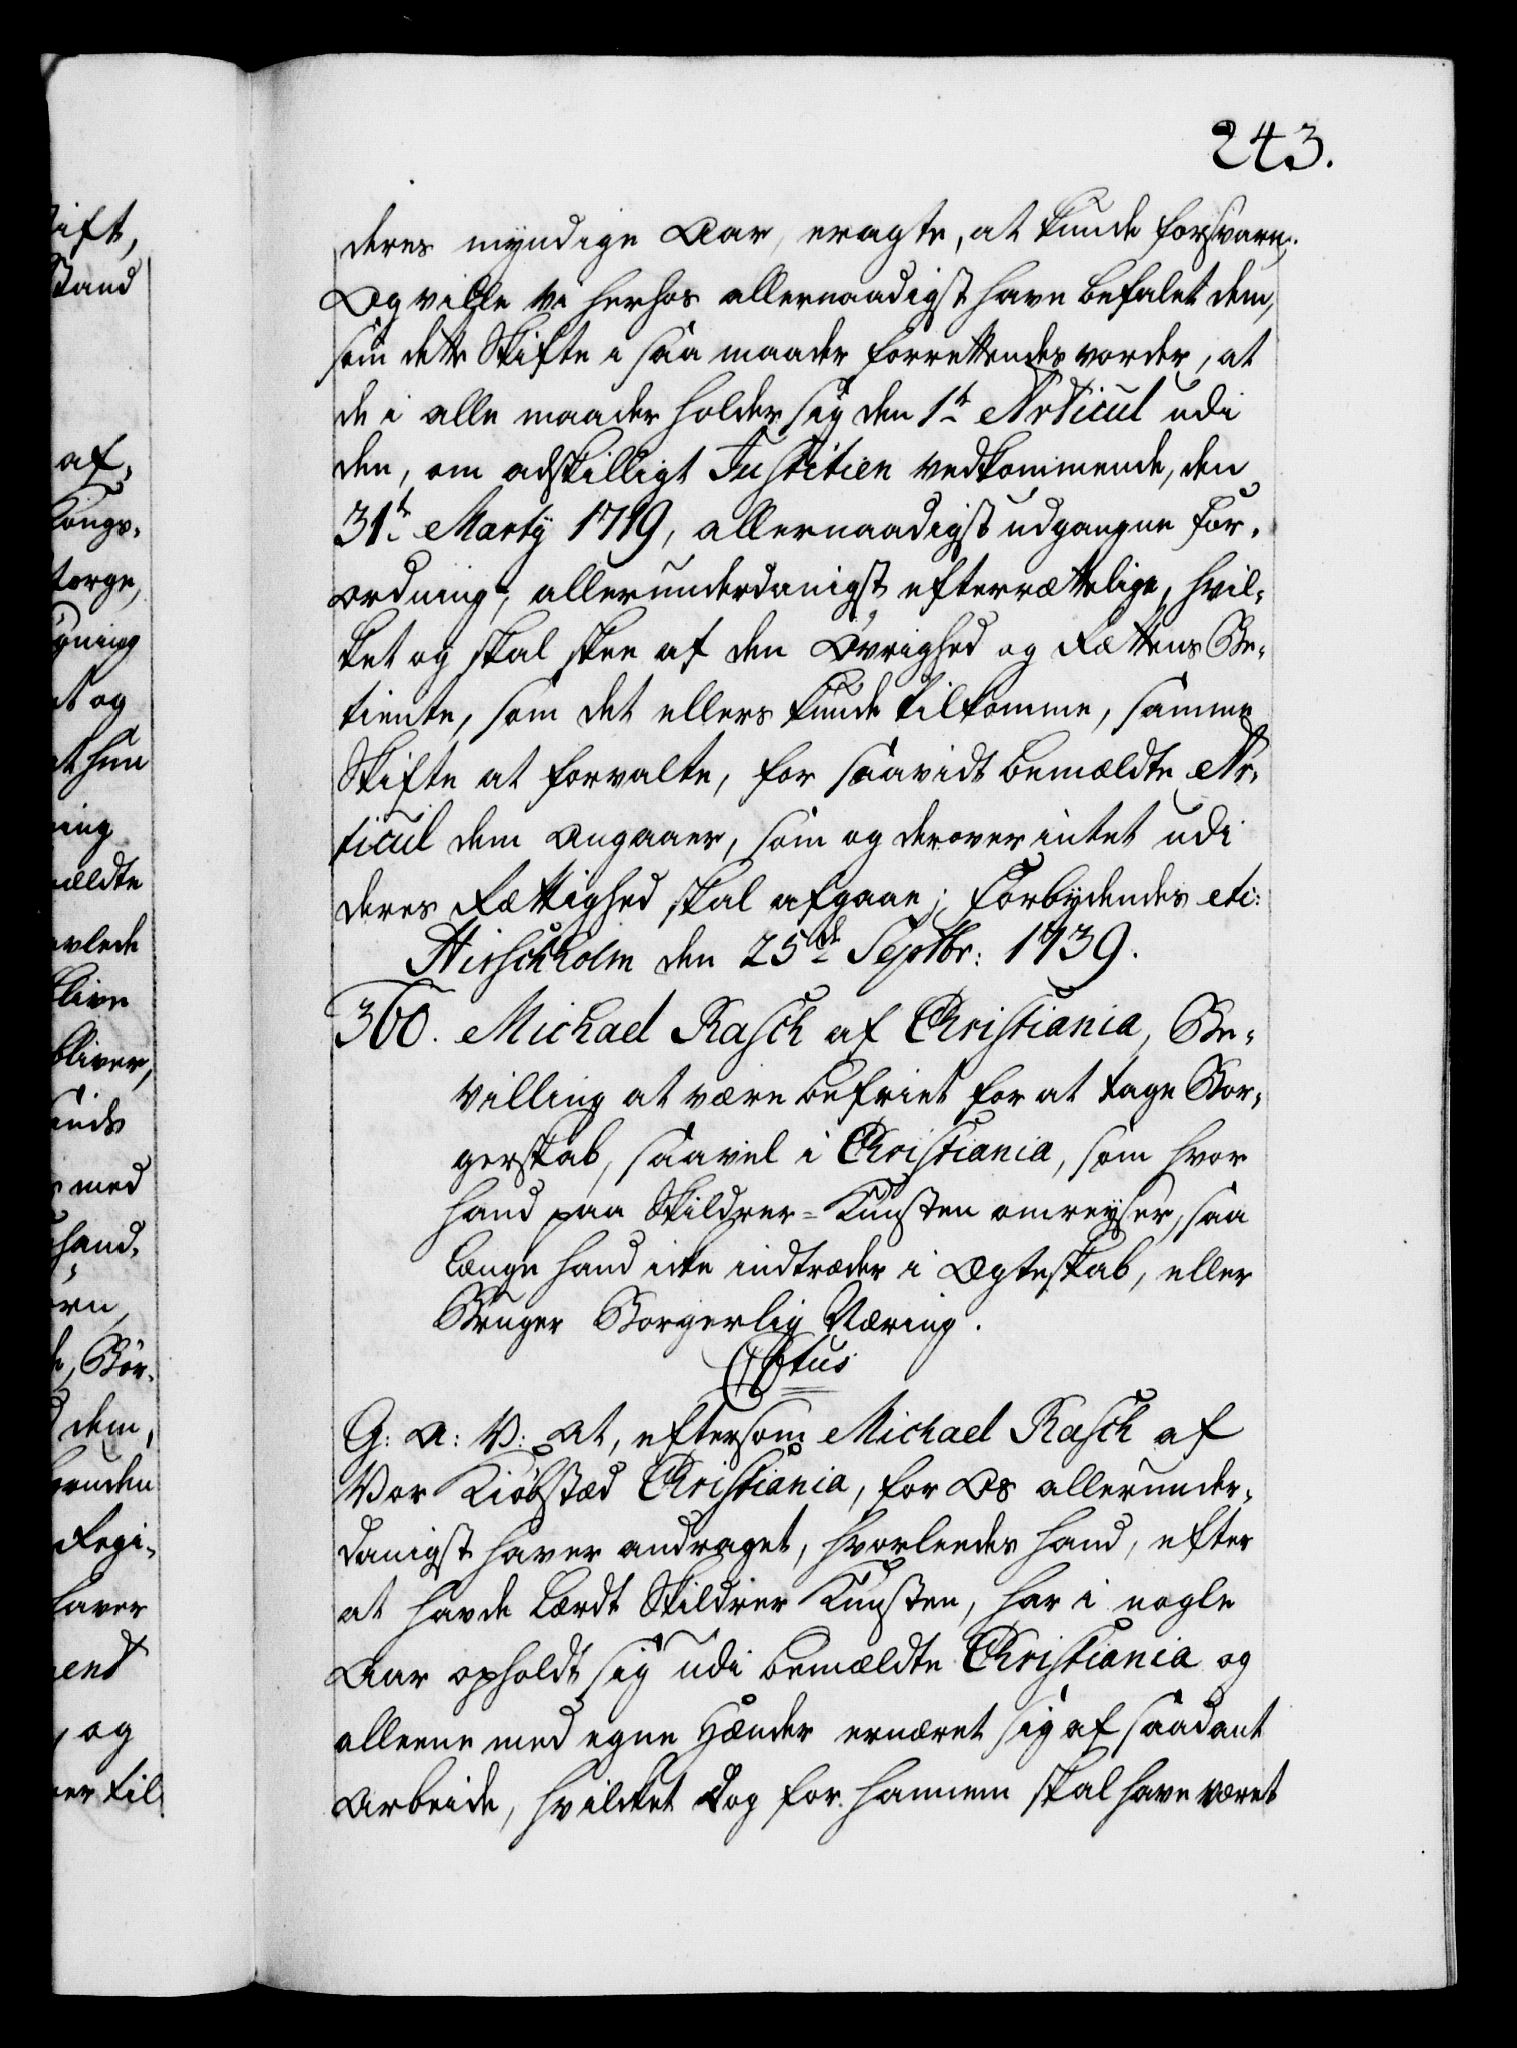 243.
deres myndige Aar, eragte, at kunde forsvare.
Og ville Vi herhos allernaadigst have befalet dem,
som dette Skifte i saa maader forrettendes vorder, at
de i alle maader holder sig den 1te Articul udi
den, om adskilligt Justitien vedkommende, den
31te Marty 1719, allernaadigst udgangne For-
ordning, allerunderdanigst efterrættelige, hvil-
ket og skal skee af den Øvrighed og Rættens Be-
tiente, som det ellers kunde tilkomme, samme
Skifte at forvalte, for saavidt bemældte Ar-
ticul dem angaaer, som og derover intet udi
deres Rættighed skal afgaae; Forbydendes etc:
Hirschholm den 25de Septbr: 1739.
360. Michael Rasch af Christiania, Be-
villing at være befriet for at tage Bor-
gerskab, saavel i Christiania, som hvor
hand paa Skildrer-Kunsten omreyser, saa
længe hand icke indtræder i Ægteskab, eller
Bruger Borgerlig Næring.
G: A: V: At, eftersom Michael Rasch af
Vor Kiøbstæd Christiania, for Os allerunder-
danigst haver andraget, hvorledes hand, efter
at havde lærdt Skildrer Kunsten, har i nogle
Aar opholdt sig udi bemældte Christiania og
alleene med egne Hænder ernæret sig af saadant
Arbeide, hvilcket dog for hannem skal have været
ift,
stand
af-
Kongs-
torge,
gning
at og
at hun
ning
mældte
avlede
blive
bliver,
med
hand-
de, Bør-
dem,
Regi-
haver
ment
og
er til